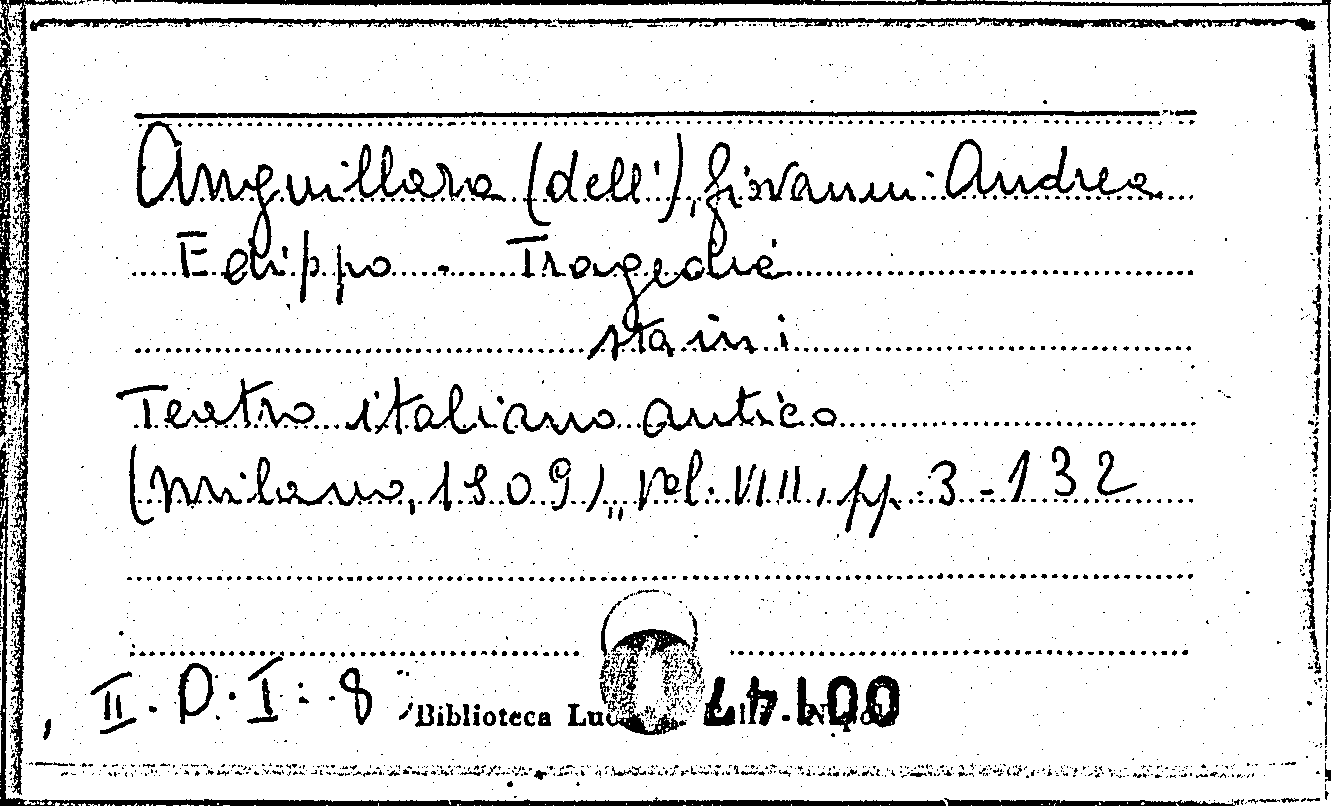 Anguillara (dell'), Giovanni Andrea
Edippo - Tragedia
sta in:
Teatro italiano antico
(Milano, 1809), vol. VIII, pp. 3-132
II. D. I. 8
Biblioteca - Napoli
00147